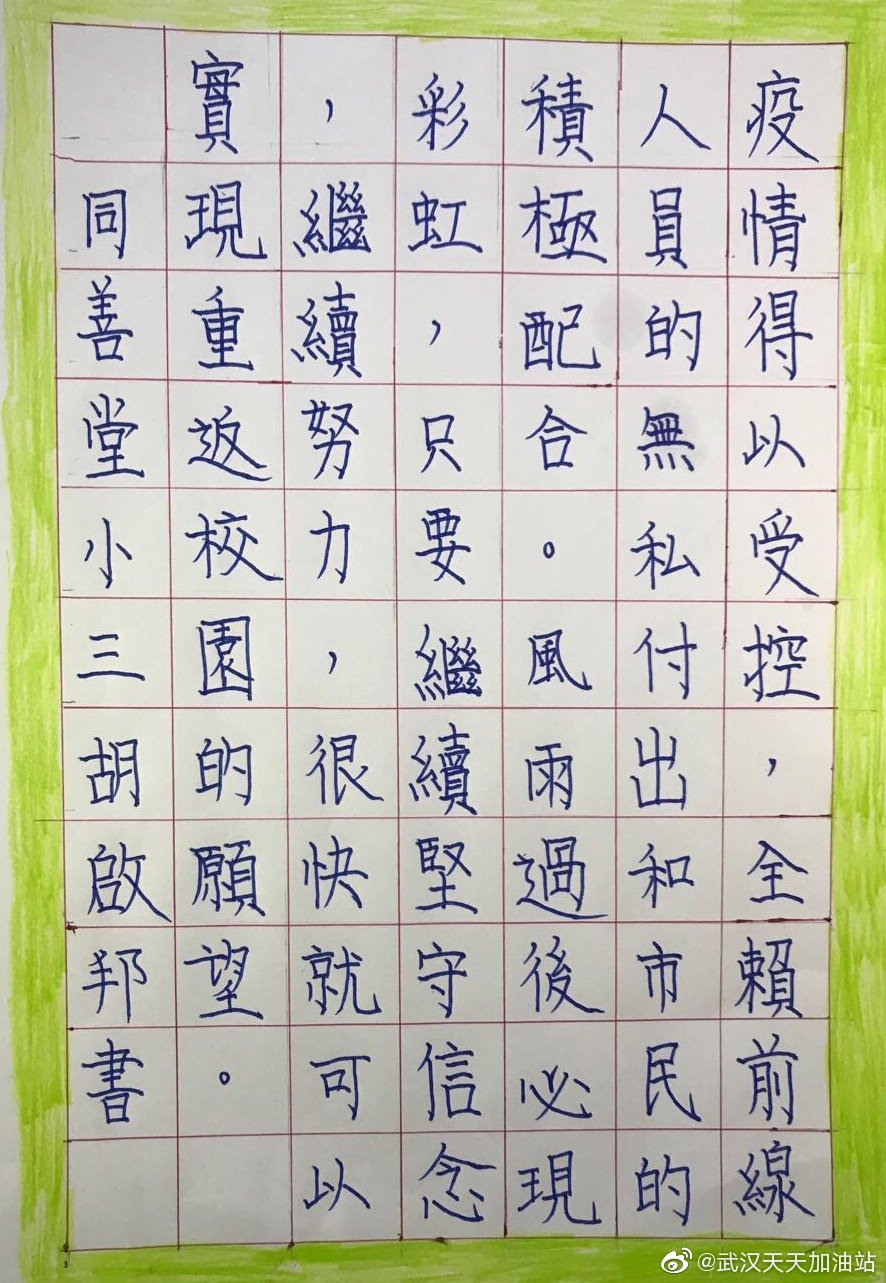 疫情得以受控，全賴前線
人員的無私付出和市民的
積極配合。風雨過後必現
彩虹，只要繼續堅守信念
，繼續努力，很快就可以
實現重返校園的願望。
同善堂小三胡啟邦書
@武汉天天加油站